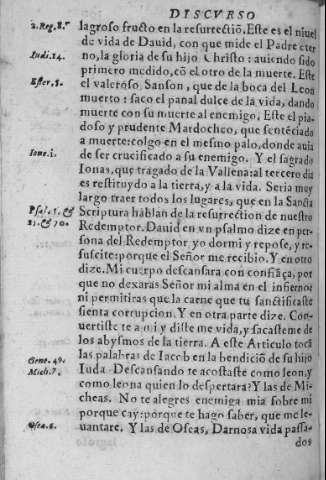 DISCVRSO
2.Reg.8.
lagroso fructo en la resurrectiõ. Este es el niuel
de vida de Dauid, con que mide el Padre eter
Iudi.14.
no, la gloria de su hijo Christo: auiendo sido
primero medido, cõ el otro de la muerte. Este
Ester.5.
el valeroso, Sanson, que de la boca del Leon
muerto: saco el panal dulce de la vida, dando
muerte con su muerte al enemigo. Este el pia-
doso y prudente Mardocheo, que sentẽciado
a muerte: colgo en el mesmo palo, donde auia
Ione.1.
de ser crucificado a su enemigo. Y el sagrado
Ionas, que tragado de la Vallena: al tercero dia
es restituydo a la tierra, y a la vida. Seria muy
largo traer todos los lugares, que en la Sancta
Psal.3. &
Scriptura hablan de la resurrection de nuestro
Redemptor. Dauid en vn psalmo dize en per-
sona del Redemptor yo dormi y repose, y re-
suscite: porque el Señor me recibio. Y en otro
dize. Mi cuerpo descansara con confiãça, por
que no dexaras Señor mi alma en el infierno:
ni permitiras que la carne que tu sanctificaste
sienta corrupcion. Y en otra parte dize. Con-
uertiste te a mi y diste me vida, y sacasteme de
los abysmos de la tierra. A este Articulo tocã
Gene.49.
las palabras de Iacob en la bendiciõ de su hijo
Mich.7.
Iuda. Descansando te acostaste como leon, y
como leona quien lo despertara? Y las de Mi-
cheas. No te alegres enemiga mia sobre mi
porque cay: porque te hago saber, que me le-
Osea.6.
uantare. Y las de Oseas, Darnosa vida passa-
dos